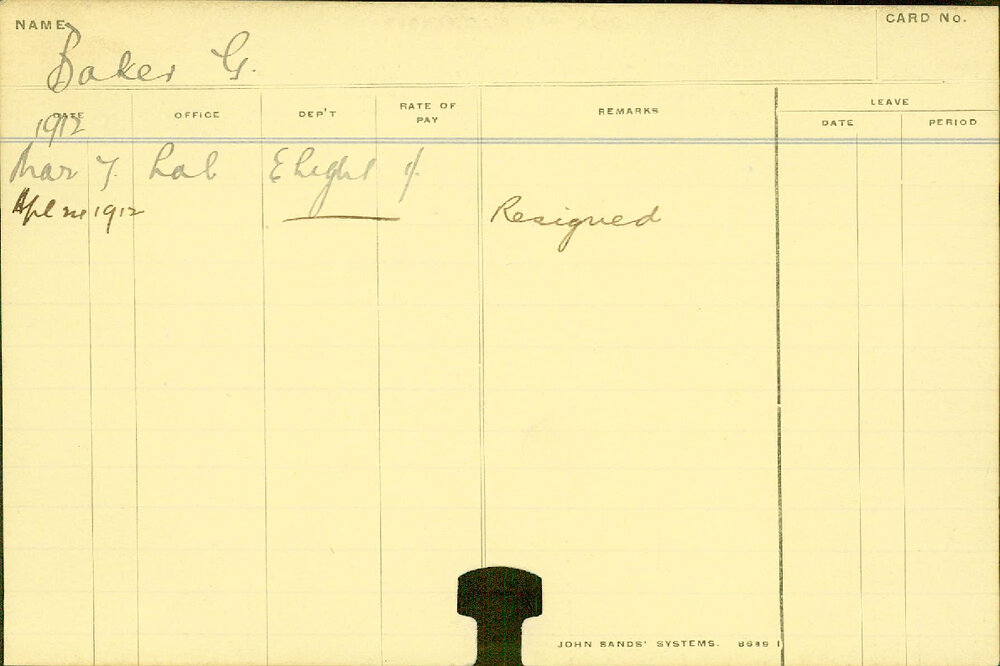 NAME
CARD No.
Baker G.
DATE OFFICE DEP'T RATE OF PAY REMARKS LEAVE
DATE PERIOD
1912
Mar 7. Lab E Light
Apl 1912 Resigned
JOHN SANDS' SYSTEMS.